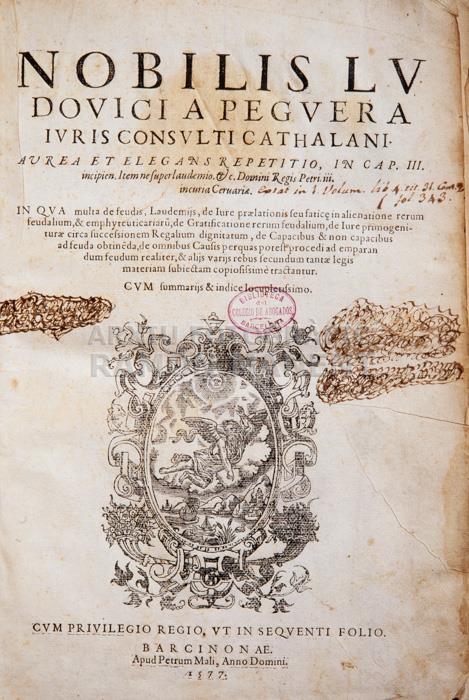 NOBILIS LV
DOVICI A PEGVERA
IVRIS CONSVLTI CATHALANI.
AVREA ET ELEGANS REPETITIO, IN CAP. III.
incipien. Item ne super laudemio. & c. Domini Regis Petri. iii.
in curia Cervariæ. Extat in 1. Volum. lib 4. tit. 31. Con. 2
fol 343.
IN QVA multa de feudis, Laudemijs, de Iure prælationis seu faticę in alienatione rerum
feudalium, & emphyteuticariarũ, de Gratificatione rerum feudalium, de Iure primogeni-
turæ circa successionem Regalium dignitatum, de Capacibus & non capacibus
ad feuda obtinẽda, de omnibus Causis per quas potest procedi ad emparan
dum feudum realiter, & alijs varijs rebus secundum tantæ legis
materiam subiectam copiosissimè tractantur.
CVM summarijs & indice locupletissimo.
BIBLIOTECA
del
COLEGIO DE ABOGADOS
BARCELONA
CVM PRIVILEGIO REGIO, VT IN SEQVENTI FOLIO.
BARCINONAE.
Apud Petrum Mali, Anno Domini.
1577.